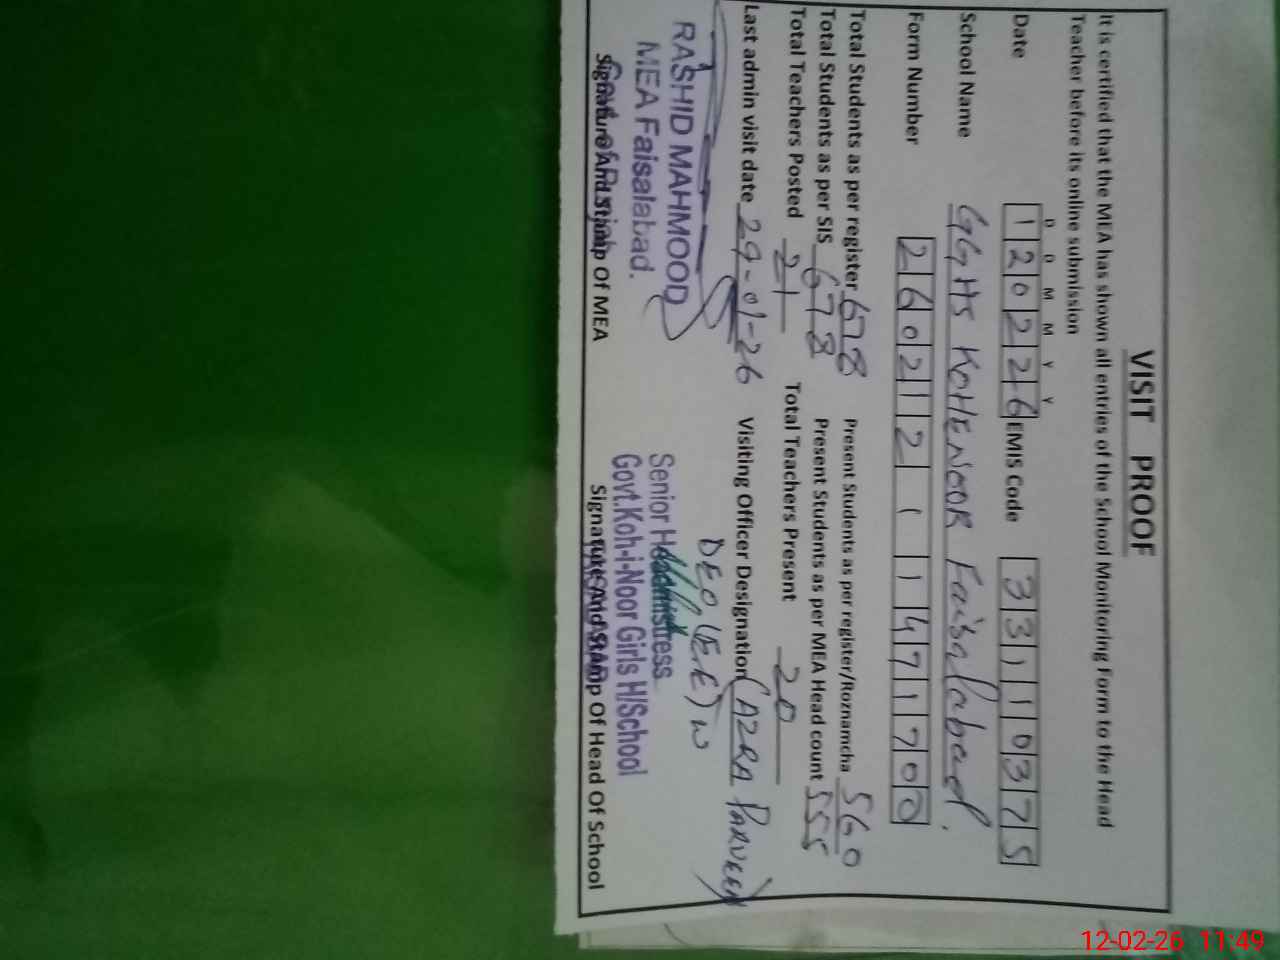 VISIT PROOF
It is certified that the MEA has shown all entries of the School Monitoring Form to the Head
Teacher before its online submission
D D M M Y Y
Date 120226 EMIS Code 33110375
School Name GGHS KOHENOOR Faisalabad.
Form Number 26021211471700
Total Students as per register 678 Present Students as per register/Roznamcha 560
Total Students as per SIS 678 Present Students as per MEA Head count 555
Total Teachers Posted 21 Total Teachers Present 20
Last admin visit date 29-01-26 Visiting Officer Designation (AZRA PARVEEN)
DEO (E.E) W
RASHID MAHMOOD
MEA Faisalabad.
Senior Headmistress
Govt.Koh-i-Noor Girls H/School
Signature And Stamp Of MEA Signature And Stamp Of Head Of School
12-02-26 11:49